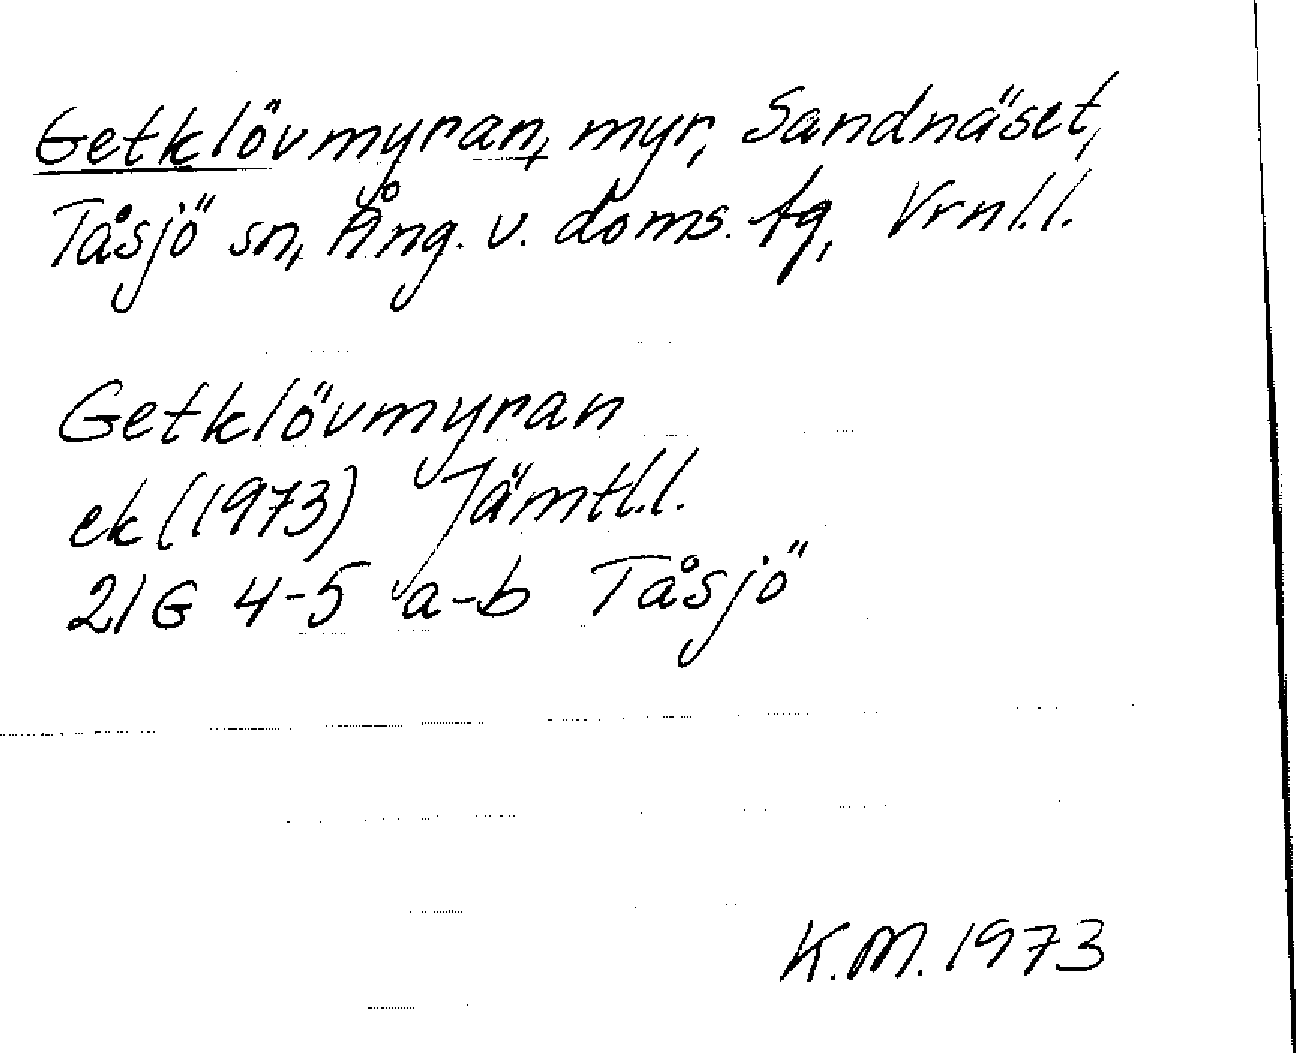 Getklövmyran, myr, Sandnäset,
Tåsjö sn, Ång. v. doms. tg, Vrnl.l.
Getklövmyran
ek (1973) Jämtl.l.
21G 4-5 a-b Tåsjö
K.M. 1973